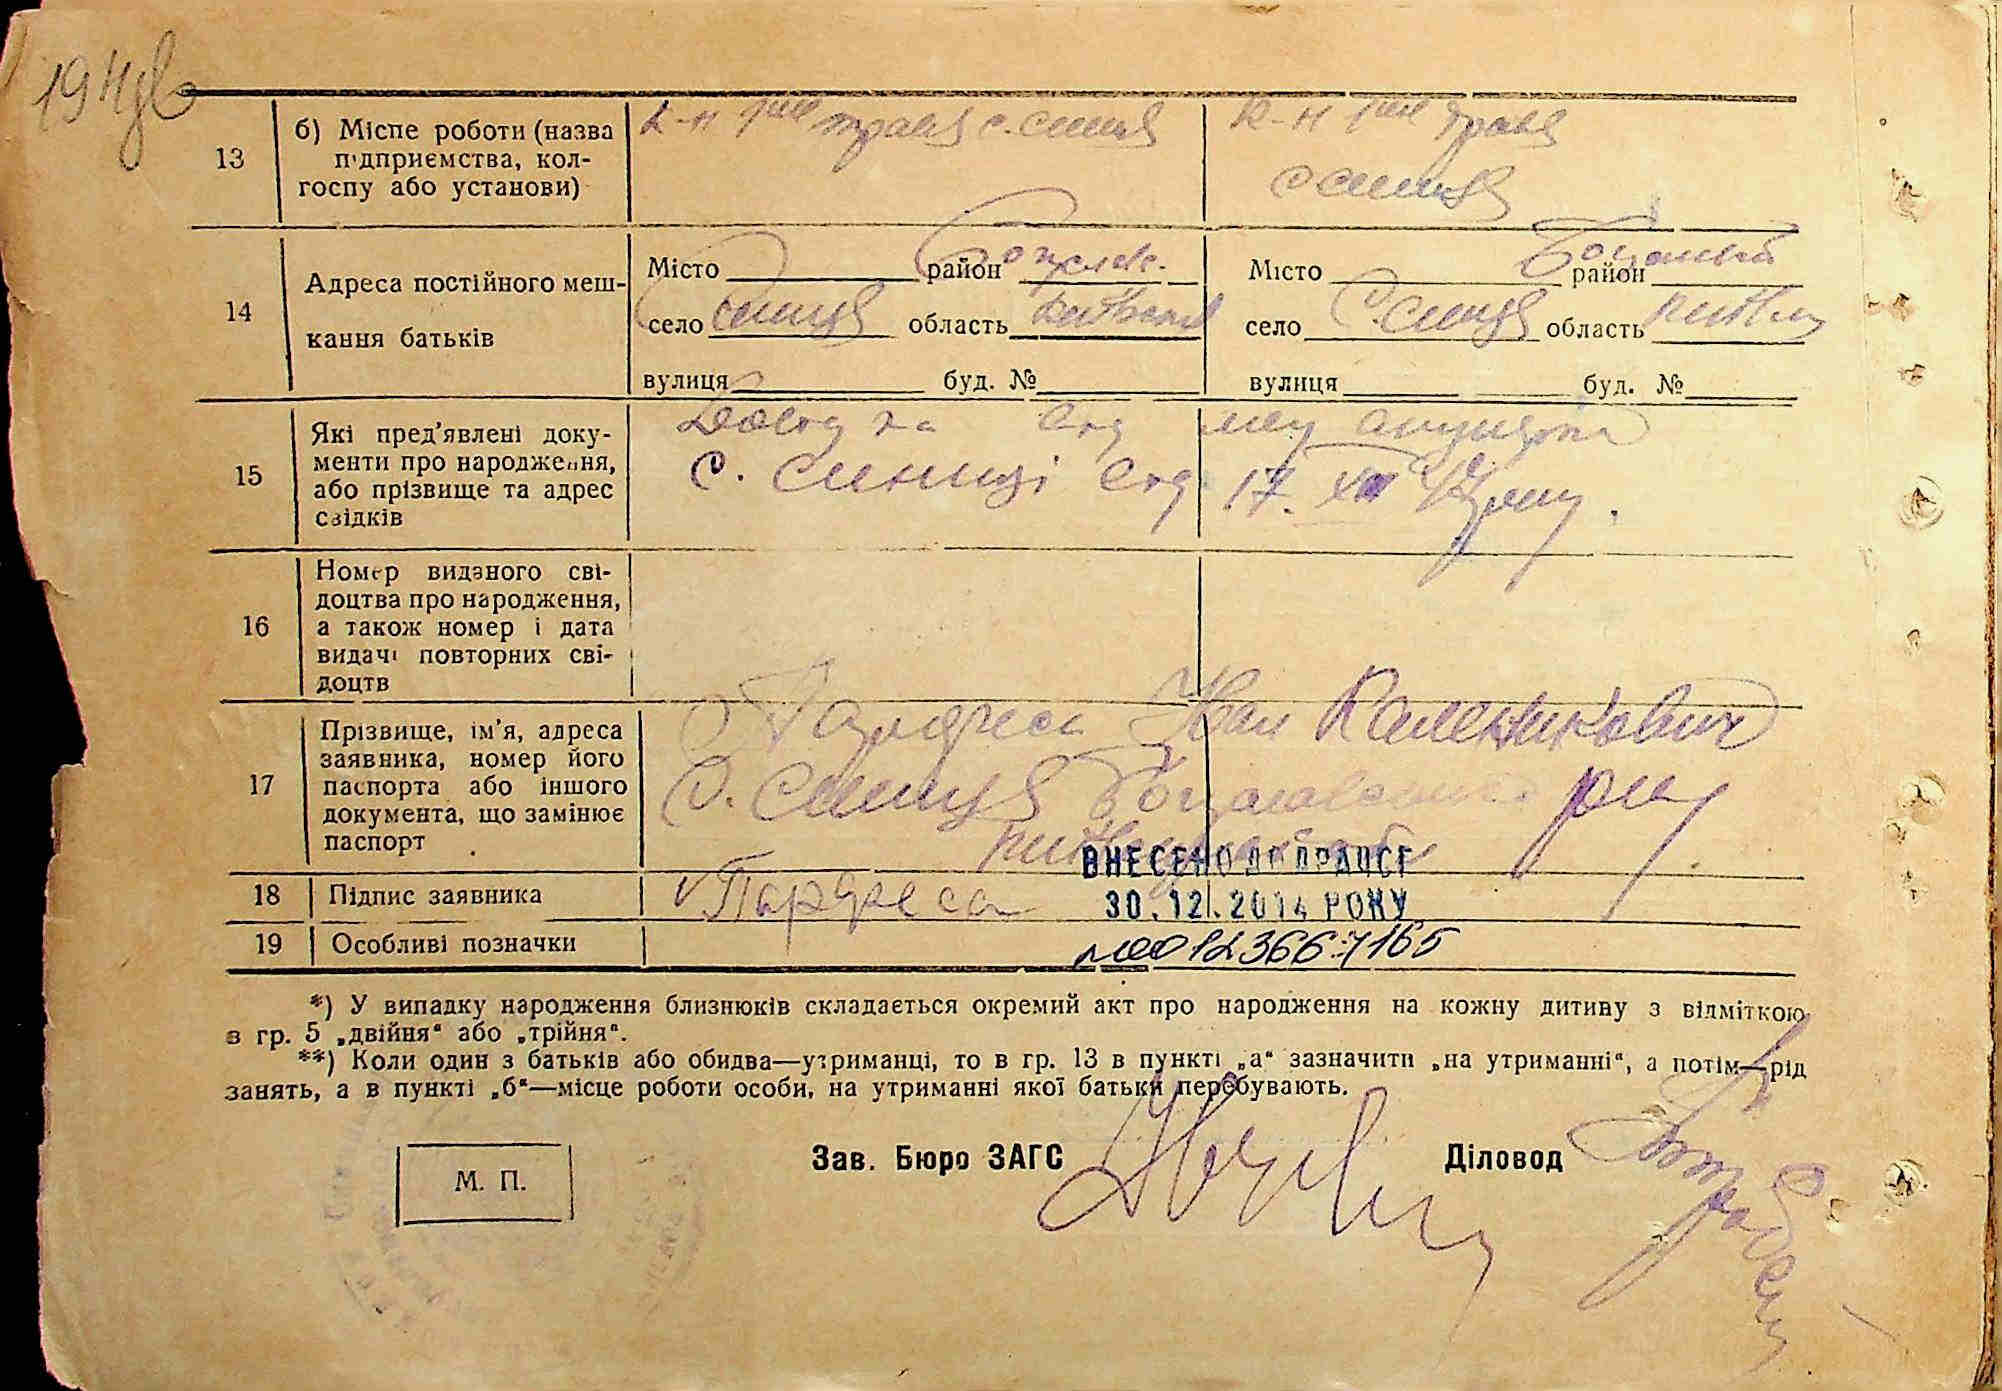 19 зв
13
б) Місце роботи (назва
підприємства, кол-
госпу або установи)
к-п 1ше травня с. Синиця
к-п 1ше травня
с Синиця
14
Адреса постійного меш-
кання батьків
Місто район Богуслав.
село Синиця область Київська
вулиця буд. №
Місто район
село Синиця область Київська
вулиця буд. №
15
Які пред'явлені доку-
менти про народження,
або прізвище та адрес
свідків
від
с. Синиці від 17. XII
16
Номер виданого сві-
доцтва про народження,
а також номер і дата
видачі повторних сві-
доцтв
17
Прізвище, ім'я, адреса
заявника, номер його
паспорта або іншого
документа, що замінює
паспорт
Іван Каленикович
с. Синиця Богуславського р-ну
18
Підпис заявника
ВНЕСЕНО ДО ДРАЦСГ
30.12.2014 РОКУ
19
Особливі позначки
№00123667165
*) У випадку народження близнюків складається окремий акт про народження на кожну дитину з відміткою
в гр. 5 „двійня“ або „трійня“.
**) Коли один з батьків або обидва—утриманці, то в гр. 13 в пункті „а“ зазначити „на утриманні“, а потім—рід
занять, а в пункті „б“—місце роботи особи, на утриманні якої батьки перебувають.
М. П.
Зав. Бюро ЗАГС
Діловод